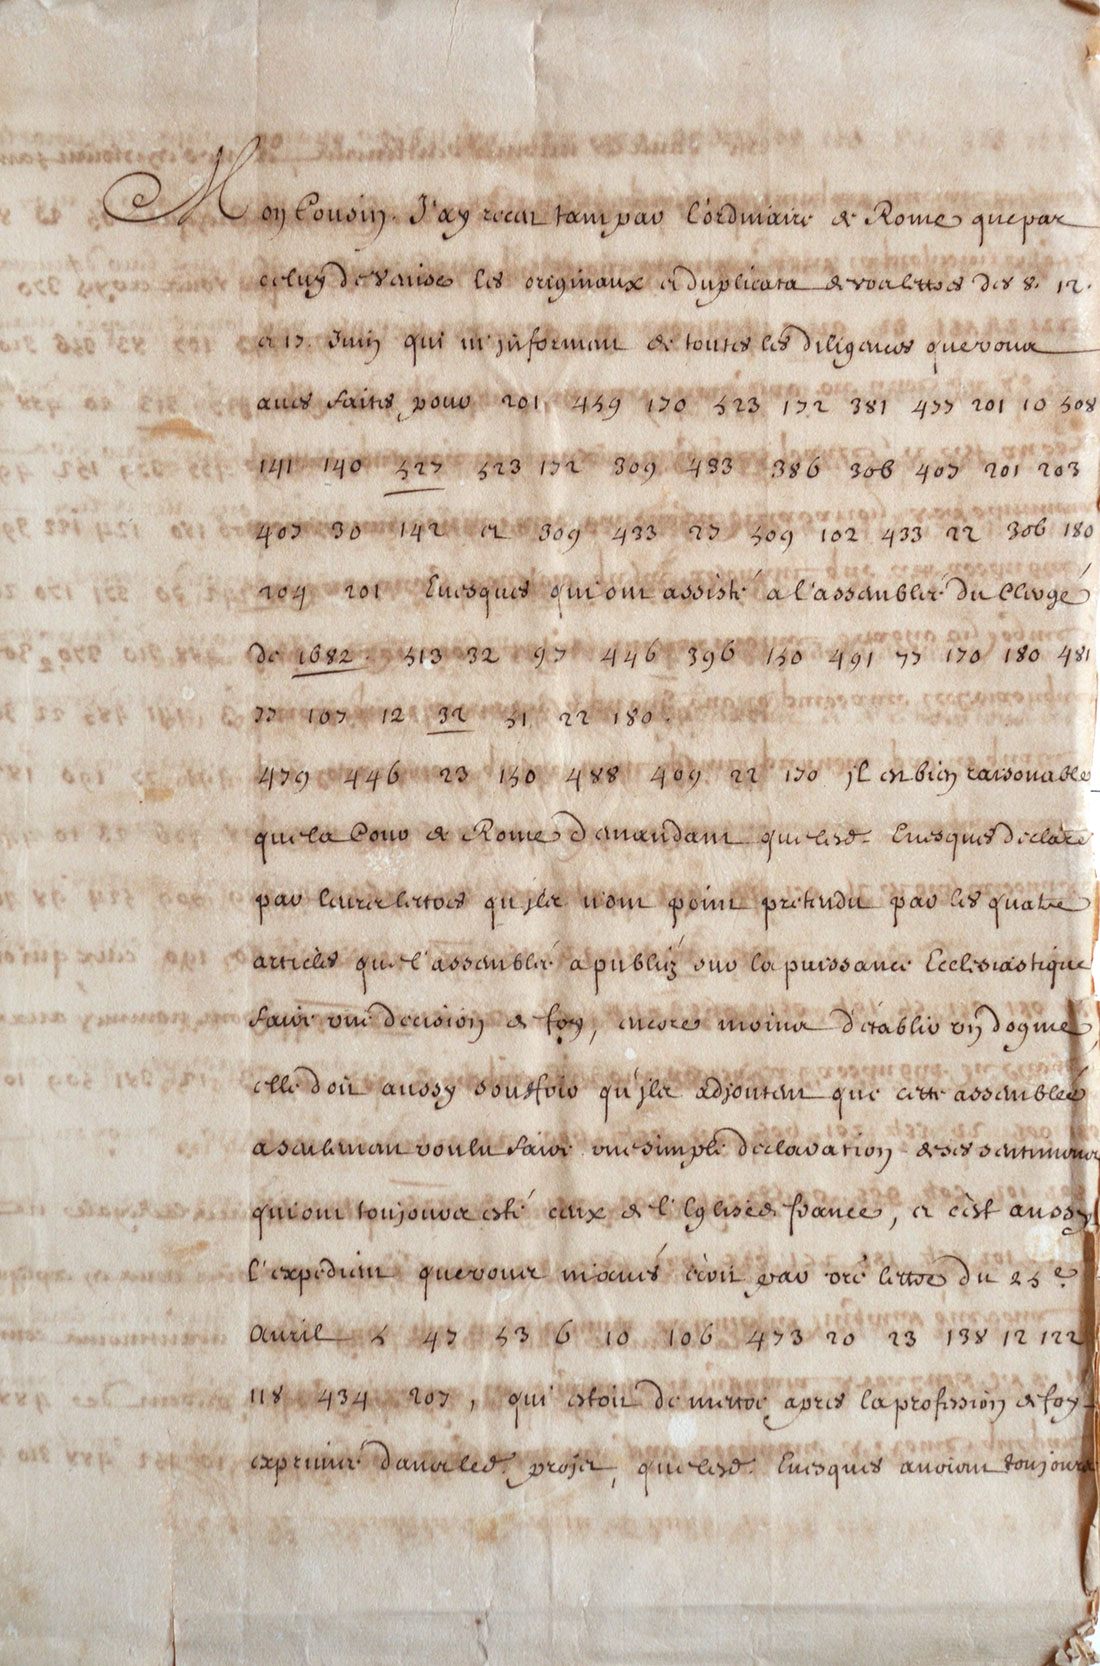 Mon Cousin. J'ay receu tant par l'ordinaire de Rome que par
celuy de Venise les originaux et duplicata de vos lettres des 8. 12.
et 17. Juin qui m'jnforment de toutes les diligences que vous
aués faites pour 201 459 170 523 172 381 477 201 10 508
141 140 527 523 172 309 433 386 306 407 201 203
407 30 142 et 309 433 27 509 102 433 22 306 180
204 201 Euesques qui ont assisté a l'assemblée du Clergé
de 1682. 513 32 97 446 396 150 491 77 170 180 481
77 107 12 32 51 22 180.
479 446 23 150 488 409 22 170 jl est bien raisonable
que la Cour de Rome demandant que lesd. Euesques declare
par leurs lettres qu'jls n'ont point pretendu par les quatre
articles que l'assemblée a publiéz sur la puissance Ecclesiastique
faire vne decision de foy, encore moins d'établir vn dogme,
elle doit aussy souffrir qu'jls adjoutent que cette assemblée
a seulement voulu faire vne simple declaration de ses sentimens
qui ont toujours esté ceux de l'Eglise de france, et c'est aussy
l'expedient que vous m'aués écrit par vre lettre du 25e.
Auril 5 47 53 6 10 106 473 20 23 138 12 122
118 434 207, qui estoit de mettre apres la profession de foy
exprimée dans led. projet, que lesd. Euesques auoient toujours